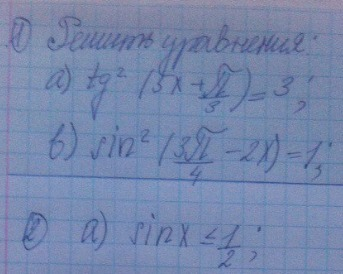 ① Решить уравнения:
а) tg² (3x + π/3) = 3;
в) sin² (3π/4 - 2x) = 1;
② а) sin x ≤ 1/2;